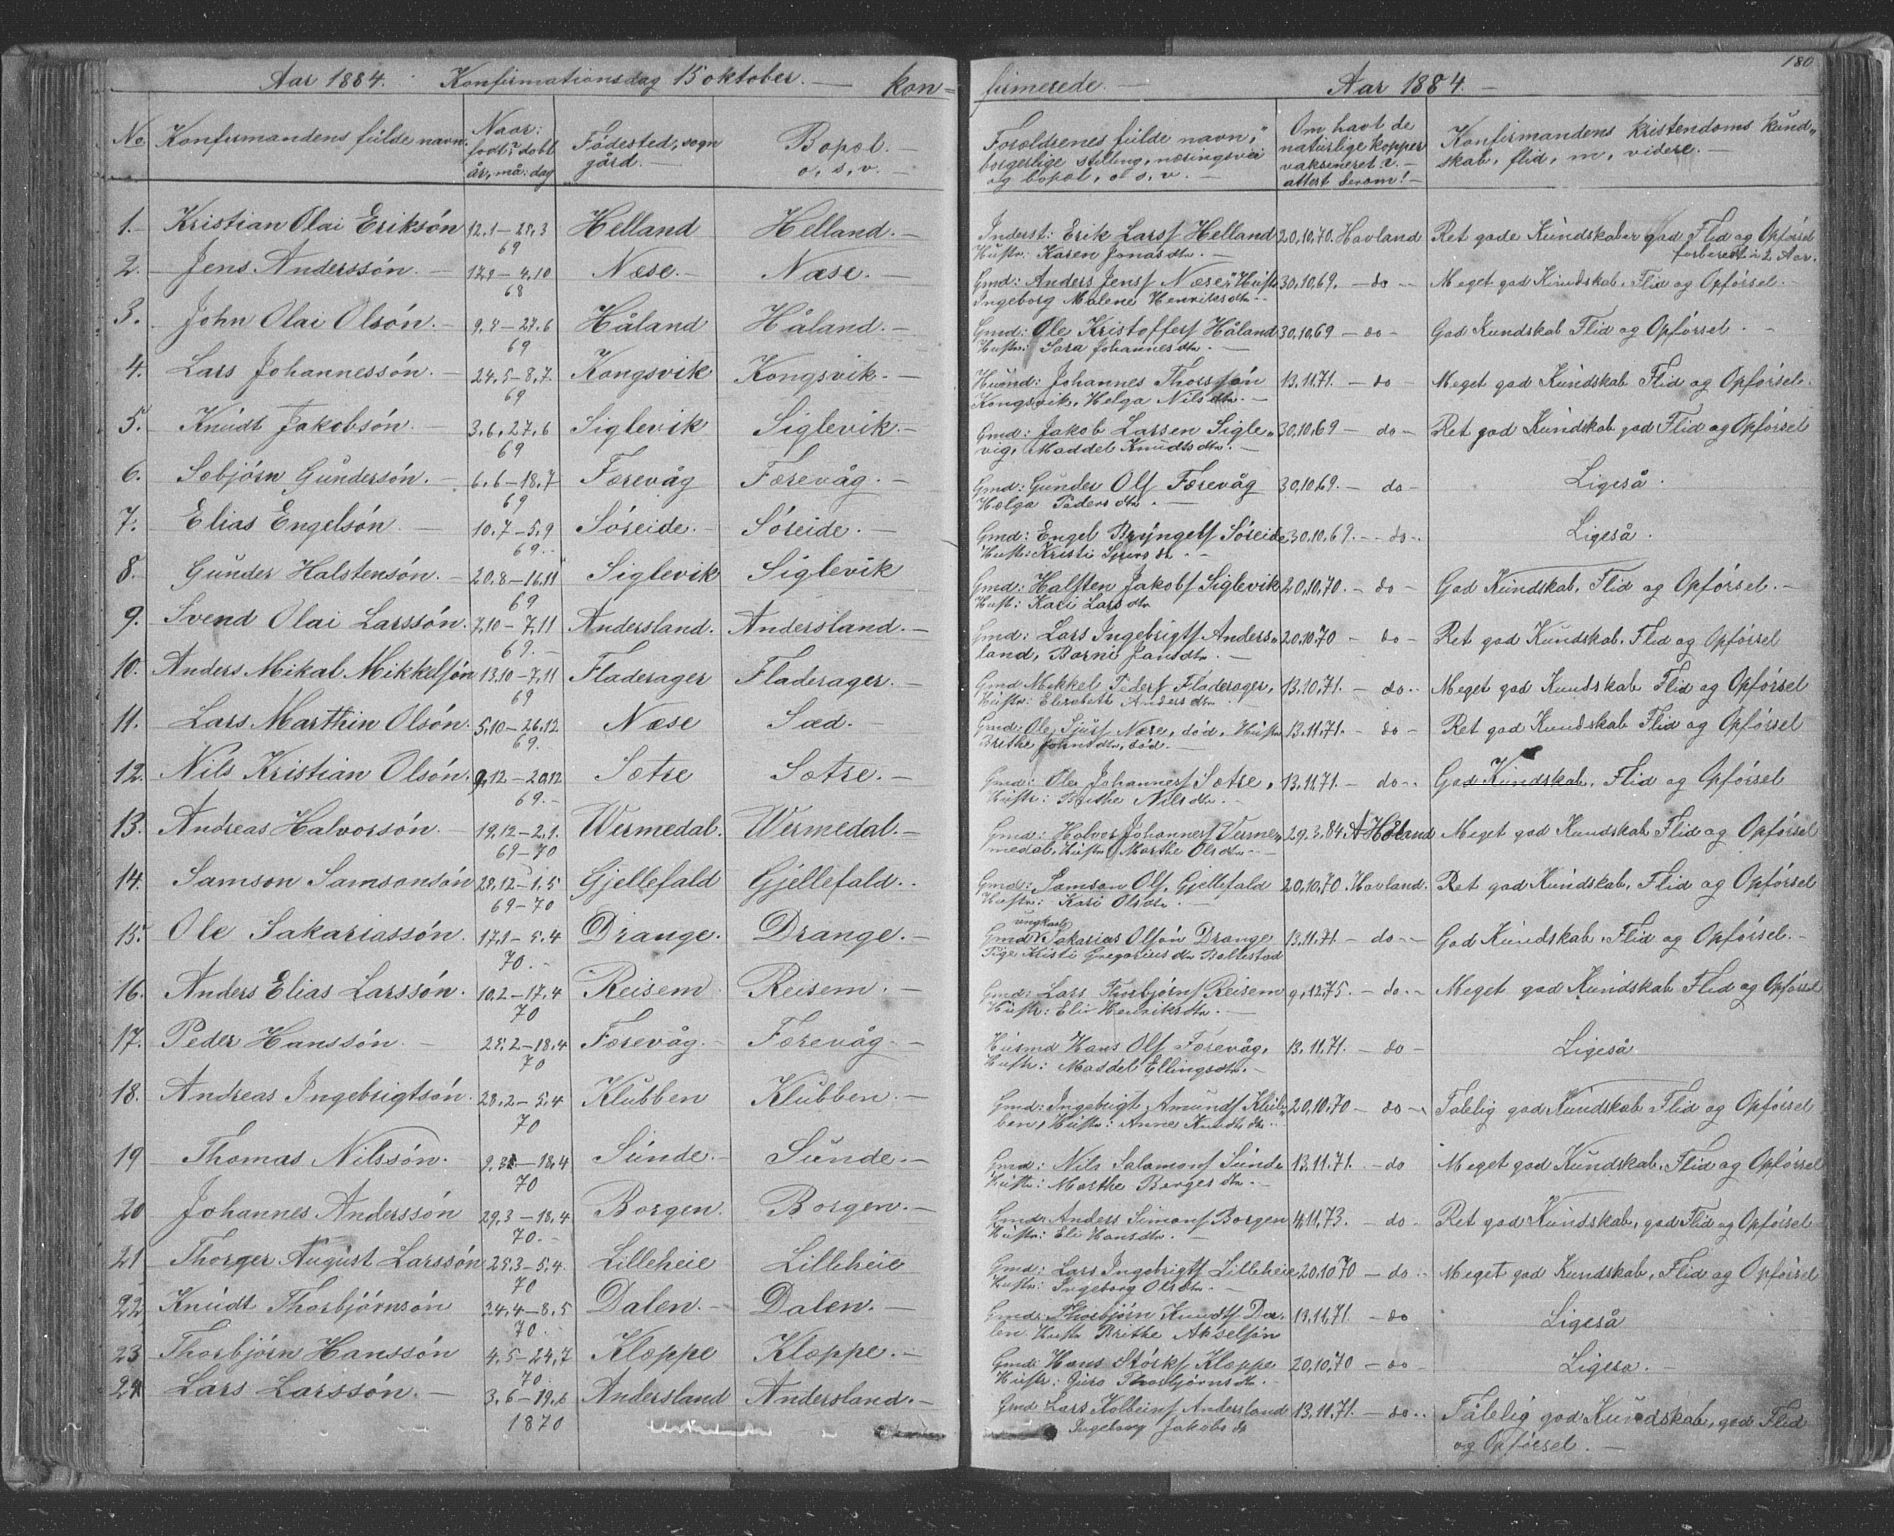 Aar 1884. Konfirmationsdag 15 oktober. — kon=
No Konfirmandens fulde navn. Naar: født? døbt år, må: dag Fødested, sogn gård. — Bopæl. — o, s, v. —
1. Kristian Olai Eriksón 12.1 – 28.3 69 Helland Helland. —
2. Jens Anderssón. — 17.2 – 4.10 68 Næse. — Næse. —
3. John Olai Olsón. — 9.4 – 27.6 69 Håland Håland. —
4. Lars Johannessón. — 24.5 – 8.7 69 Kongsvik Kongsvik. —
5. Knudt Jakobsón. — 3.6. 27.6 69 Siglevik Siglevik. —
6. Sebjörn Gundersón. — 6.6 – 18.7 69 Færevåg Færevåg. —
7. Elias Engelsón. — 10.7 – 5.9 69. Söreide. — Söreide. —
8. Gunder Halstensón. — 20.8 – 16.11 69 Siglevik Siglevik
9. Svend Olai Larssón. 7.10 – 7.11 69. — Andersland. Andersland. —
10. Anders Mikal Mikkelsón 13.10 – 7.11 69 Fladerager Fladerager. —
11. Lars Marthin Olsón. 5.10 – 26.12 69. Næse Sæd. —
12. Nils Kristian Olsón. 9.12 – 20.12 69. — Sætre Sætre. —
13. Andreas Halvorsón. — 19.12 – 2.1. 69–70 Wermedal. Wermedal. —
14. Samson Samsonsón 28.12 – 1.5 69–70 Gjellefald Gjellefald. .
15. Ole Sakariassón. 17.1 – 5.4 70. — Drange. Drange. —
16. Anders Elias Larssón. 10.2 – 17.4 70 Reisem. Reisem. —
17. Peder Hanssón. — 25.2 – 18.4 70 Færevåg. Færevåg. —
18. Andreas Ingebrigtsón. 28.2 – 5.4 70 Klubben Klubben. —
19 Thomas Nilssón. — 9.3 – 18.4 70 Sunde. — Sunde. —
20 Johannes Anderssón 29.3 – 18.4 70. — Borgen. Borgen. —
21 Thorger August Larssón 25.3 – 5.4. 70 Lilleheie Lilleheie
22 Knudt Thorbjörnsón 24.4 – 8.5 70. Dalen. — Dalen. —
23 Thorbjörn Hanssón 4.5 – 24.7 70. Kloppe Kloppe. —
24 Lars Larssón. — 3.6 – 19.6 1870 Andersland Andersland. —
180
firmerede. — Aar 1884. —
Foræeldrenes fulde navn, borgerlige stilling, næringsvei og bopæl, o s, v. — Om havt de naturlige kopper vaksineret? — attest derom! — Konfirmandens kristendoms kund„ skab, flid, m, videre. —
Inderst: Erik Larss Helland 20.10.70. Havland Ret gode Kundskaber god Flid og Opförsel
Hustr: Karen Jonasdtr. — forberedt i 2 Aar.
Gmd: Anders Jenss Næse Hustr 30.10.69. — do — Meget god Kundskab. Flid og Opförsel. —
Ingeborg Malene Henriksdtr. —
Gmd: Ole Kristoffers Håland 30.10.69 — do — God Kundskab Flid og Opförsel. —
Hustr: Sara Johannesdtr. —
Johannes Thorssón 13.11.71. — do — Meget god Kundskab Flid og Opförsel.
Kongsvik. Helga Nilsdtr. —
Gmd: Jakob Larsen Sigle„ 30.10.69 — do — Ret god Kundskab god Flid og Opförsel
vig, Maddel Knudtsdtr. —
Gmd: Gunder Ols Færevåg 30.10.69. — do — Ligeså.
Helga Pedersdtr. —
Gmd: Engel Bryngels Söreide 30.10.69. — do — Ligeså.
Hustr: Kristi
Gmd: Halsten Jakobs Siglevik 20.10.70. — do — God Kundskab. Flid og Opförsel. —
Hustr: Kari Larsdtr
Gmd: Lars Ingebrigts Anders= 20.10.70 — do — Ret god Kundskab. Flid og Opförsel
land, Barni Jansdtr. —
Gmd Mikkel Peders Fladerager, 13.10.71. — do — Meget god Kundskab Flid og Opförsel
Hustr: Elisabeth Andersdtr
Gmd: Ole Sjurs Næse, död, Hustr 13.11.71. — do — Ret god Kundskab Flid og Opförsel
Brithe Johnsdtr, död. —
Gmd: Ole Johanness Sætre, 13.11.71. — do — God Kundskab. Flid og Opförsel
Hustr: Brithe Nilsdtr. —
Gmd: Halvor Johanness Verme„ 29.3.84 A Høland Meget god Kundskab Flid og Opförsel
medal, Hustr Marthe Olsdtr. —
Gmd: Samson Ols. Gjellefald 20.10.70 Havland. Ret god Kundskab. Flid og Opförsel
Hustr: Kari Olsdtr. —
ungkarl
Gmd Sakarias Olsón Drange 13.11.71 — do — God Kundskab. Flid og Opförsel. —
Pige Kristi Gregoriusdtr Bollestad
Gmd: Lars Thorbjörns Reisem 9.12.75. — do — Meget god Kundskab Flid og Opförsel
Hustr: Eli Henriksdtr. —
Husmd Hans Ols Færevåg, 13.11.71. — do — Ligeså
Hustr: Maddel Ellingsdtr. —
Gmd: Ingebrigt Amunds Klub„ 20.10.70 — do — Tålelig god Kundskab Flid og Opförsel
ben, Hustr: Anne Knudtsdtr
Gmd: Nils Salamons Sunde 13.11.71. — do Meget god Kundskab. Flid og Opförsel
Hustr: Marthe Børgesdtr. —
Gmd: Anders Simons Borgen 4.11.73. — do — Ret god Kundskab, god Flid og Opförsel
Hustr: Eli Hansdtr. —
Gmd: Lars Ingebrigts Lilleheie 20.10.70 — do — Meget god Kundskab. Flid og Opförsel
Hustr: Ingeborg Olsdtr. —
Gmd: Thorbjörn Knudts Da„ 13.11.71. — do Ligeså
len Hustr Brithe Akselsön
Gmd: Hans Störks Kloppe 20.10.70 — do — Ligeså. —
Hustr: Guro Thorbjörnsdtr. —
Gmd Lars Kolbeins Andersland 13.11.71. — do — Tålelig god Kundskab, god Flid
Ingeborg Jakobsdtr og Opförsel. —